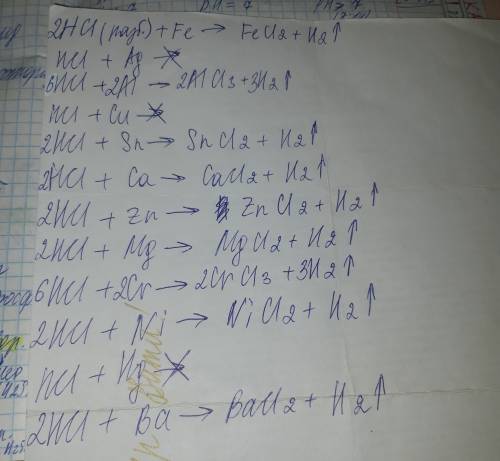 2HCl (разб) + Fe → FeCl2 + H2↑
HCl + Ag ↛
6HCl + 2Al → 2AlCl3 + 3H2↑
HCl + Cu ↛
2HCl + Sn → SnCl2 + H2↑
2HCl + Ca → CaCl2 + H2↑
2HCl + Zn → ZnCl2 + H2↑
2HCl + Mg → MgCl2 + H2↑
6HCl + 2Cr → 2CrCl3 + 3H2↑
2HCl + Ni → NiCl2 + H2↑
HCl + Hg ↛
2HCl + Ba → BaCl2 + H2↑